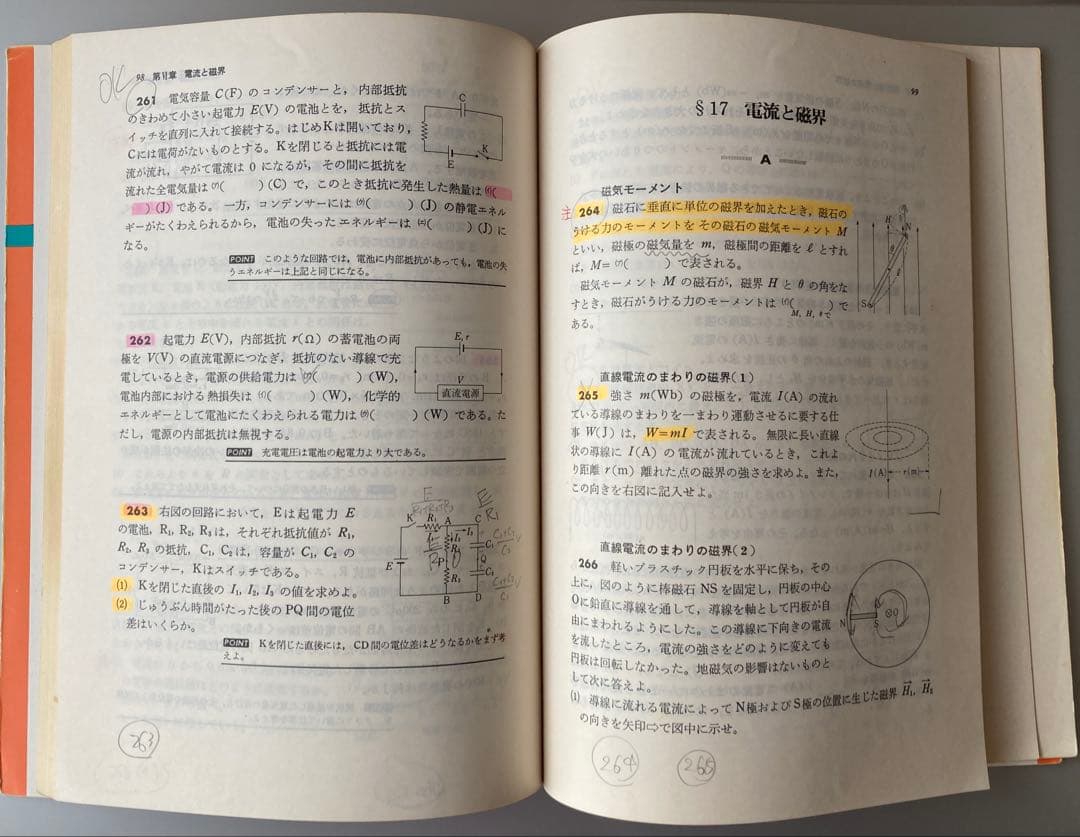 98 第Ⅵ章 電流と磁界
OK
261 電気容量 C(F) のコンデンサーと，内部抵抗
のきわめて小さい起電力 E(V) の電池とを，抵抗とス
イッチを直列に入れて接続する。はじめKは開いており，
Cには電荷がないものとする。Kを閉じると抵抗には電
流が流れ，やがて電流は 0 になるが，その間に抵抗を
流れた全電気量は (ア)( ) (C) で，このとき抵抗に発生した熱量は (イ)(
) (J) である。一方，コンデンサーには (ウ)( ) (J) の静電エネル
ギーがたくわえられるから，電池の失ったエネルギーは (エ)( ) (J) に
なる。
C
E
K
POINT このような回路では，電池に内部抵抗があっても，電池の失
うエネルギーは上記と同じになる。
262 起電力 E(V)，内部抵抗 r(Ω) の蓄電池の両
極を V(V) の直流電源につなぎ，抵抗のない導線で充
電しているとき，電源の供給電力は (ア)( ) (W)，
電池内部における熱損失は (イ)( ) (W)，化学的
エネルギーとして電池にたくわえられる電力は (ウ)( ) (W) である。た
だし，電源の内部抵抗は無視する。
E, r
V
直流電源
POINT 充電電圧は電池の起電力より大である。
263 右図の回路において，Eは起電力 E
の電池，R₁, R₂, R₃は，それぞれ抵抗値が R₁,
R₂, R₃ の抵抗，C₁, C₂は，容量が C₁, C₂ の
コンデンサー，Kはスイッチである。
(1) Kを閉じた直後の I₁, I₂, I₃ の値を求めよ。
(2) じゅうぶん時間がたった後のPQ間の電位
差はいくらか。
K R₁ A C
E P Q
R₃ C₂
B D
POINT Kを閉じた直後には，CD間の電位差はどうなるかをまず考
えよ。
263
99
§17 電流と磁界
A
磁気モーメント
注 264 磁石に垂直に単位の磁界を加えたとき，磁石の
うける力のモーメントをその磁石の磁気モーメント M
といい，磁極の磁気量を m，磁極間の距離を ℓ とすれ
ば，M= (ア)( ) で表される。
磁気モーメント M の磁石が，磁界 H と θ の角をな
すとき，磁石がうける力のモーメントは (イ)( ) で
M, H, θで
ある。
H
N
S
直線電流のまわりの磁界(1)
265 強さ m(Wb) の磁極を，電流 I(A) の流れ
ている導線のまわりを一まわり運動させるに要する仕
事 W(J) は，W=mI で表される。無限に長い直線
状の導線に I(A) の電流が流れているとき，これよ
り距離 r(m) 離れた点の磁界の強さを求めよ。また，
この向きを右図に記入せよ。
I(A) r(m)
直線電流のまわりの磁界(2)
266 軽いプラスチック円板を水平に保ち，その
上に，図のように棒磁石 NS を固定し，円板の中心
Oに鉛直に導線を通して，導線を軸として円板が自
由にまわれるようにした。この導線に下向きの電流
を流したところ，電流の強さをどのように変えても
円板は回転しなかった。地磁気の影響はないものと
して次に答えよ。
N S O
(1) 導線に流れる電流によってN極およびS極の位置に生じた磁界 H₁, H₂
の向きを矢印⇨で図中に示せ。
264 265